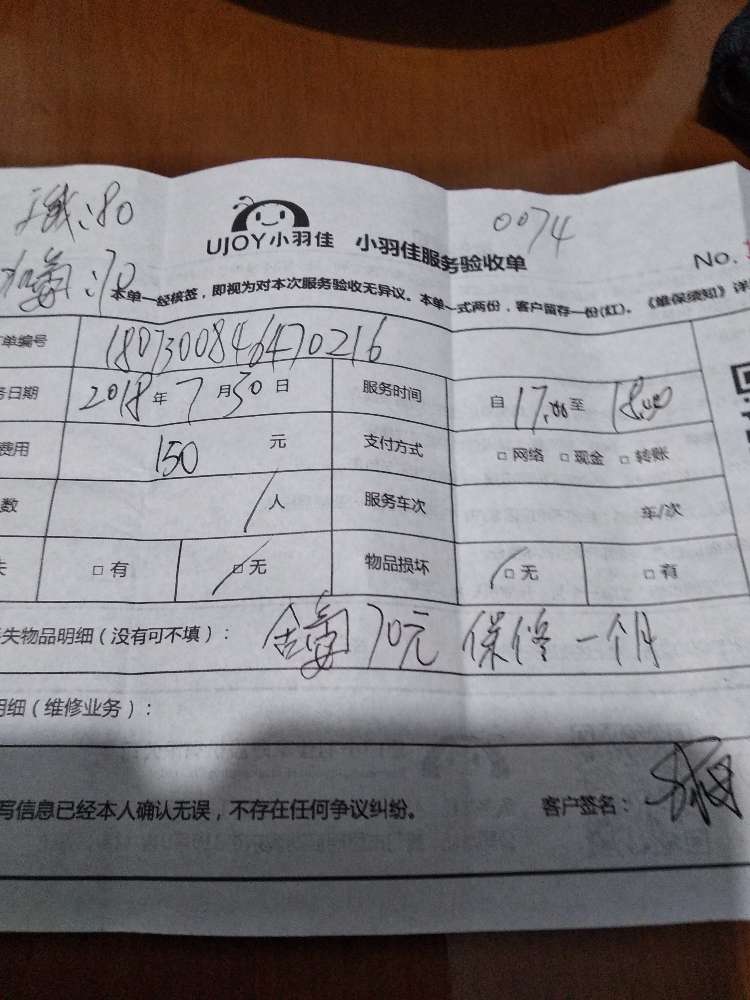 :80
0074
UJOY小羽佳 小羽佳服务验收单
No.
:70
本单一经核签,即视为对本次服务验收无异议。本单一式两份,客户留存一份(红)。《维保须知》详
单编号 1807300846470216
务日期 2018年7月30日 服务时间 自17:00至18:00
费用 150元 支付方式 □网络 □现金 □转账
数 1人 服务车次 车/次
失 □有 □无 物品损坏 □无 □有
失物品明细(没有可不填): 70元 保修一个月
明细(维修业务):
写信息已经本人确认无误,不存在任何争议纠纷。 客户签名: